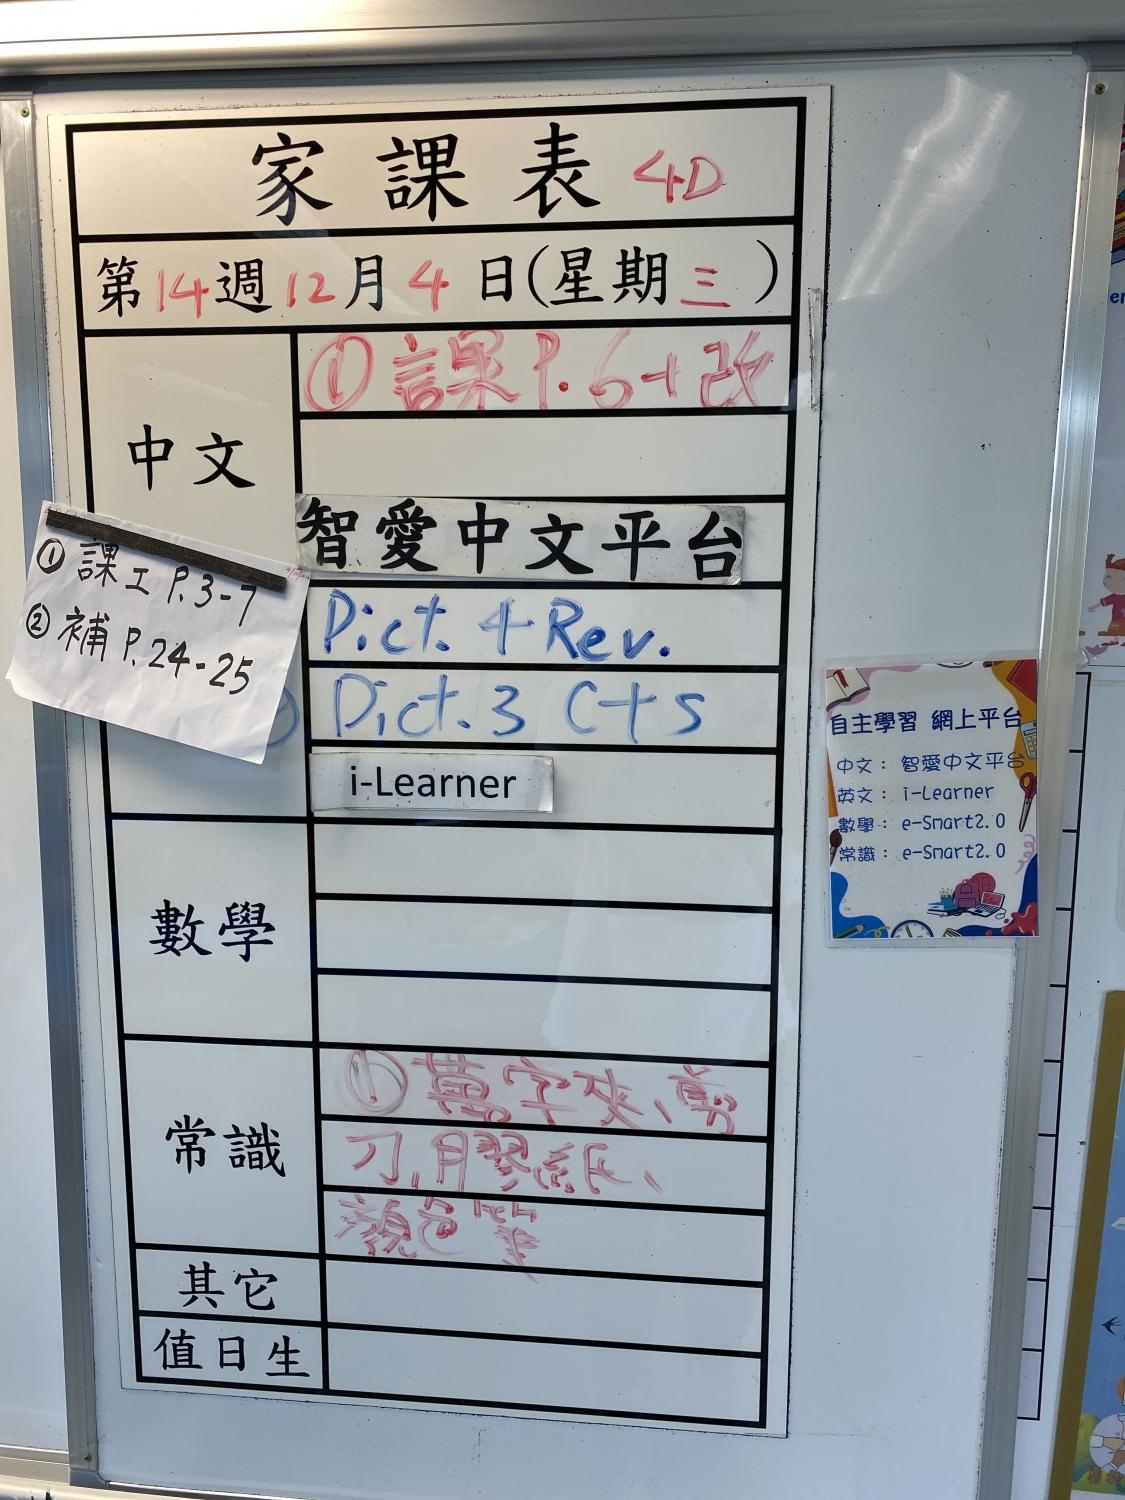 家課表 4D
第14週12月4日(星期三)
中文
① 課P.6+改
智愛中文平台
① 課工 P.3-7
② 補 P.24-25
Dict. 4 Rev.
Dict. 3 C+S
i-Learner
數學
常識
① 萬字夾、剪
刀、膠紙、
顏色筆
其它
值日生
自主學習 網上平台
中文： 智愛中文平台
英文： i-Learner
數學： e-Smart2.0
常識： e-Smart2.0